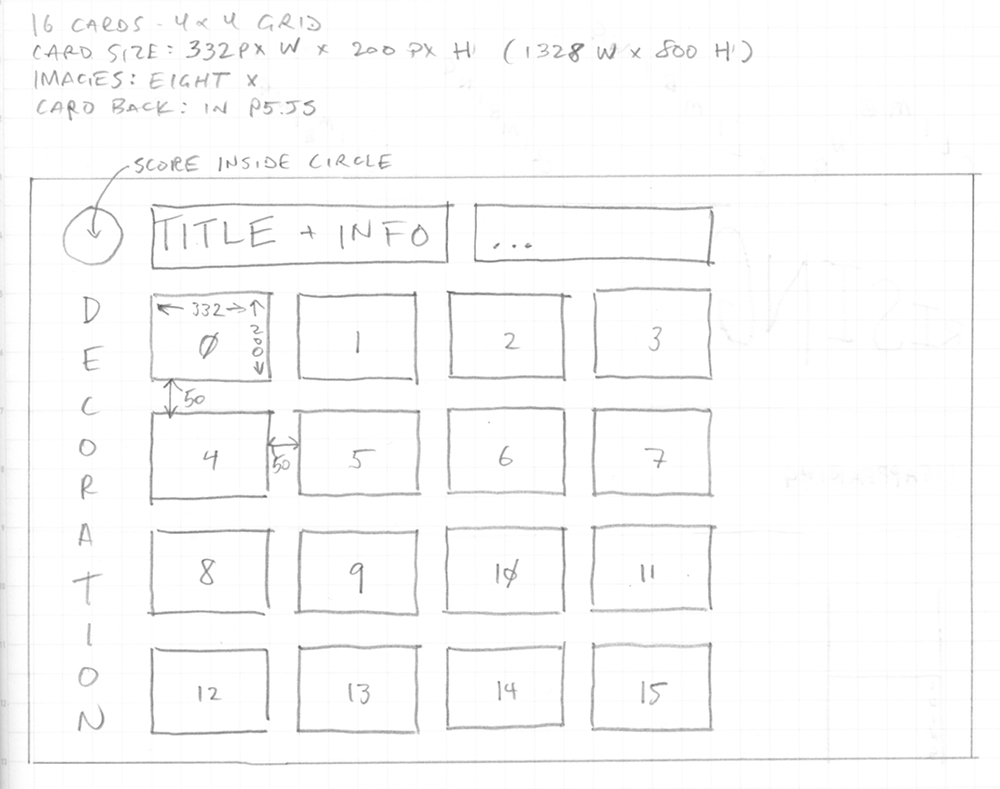 16 CARDS - 4 x 4 GRID
CARD SIZE: 332PX W x 200 PX H (1328 W x 800 H)
IMAGES: EIGHT x
CARD BACK: IN P5.JS
SCORE INSIDE CIRCLE
TITLE + INFO
...
DECORATION
332
200
0
1
2
3
50
4
50
5
6
7
8
9
10
11
12
13
14
15